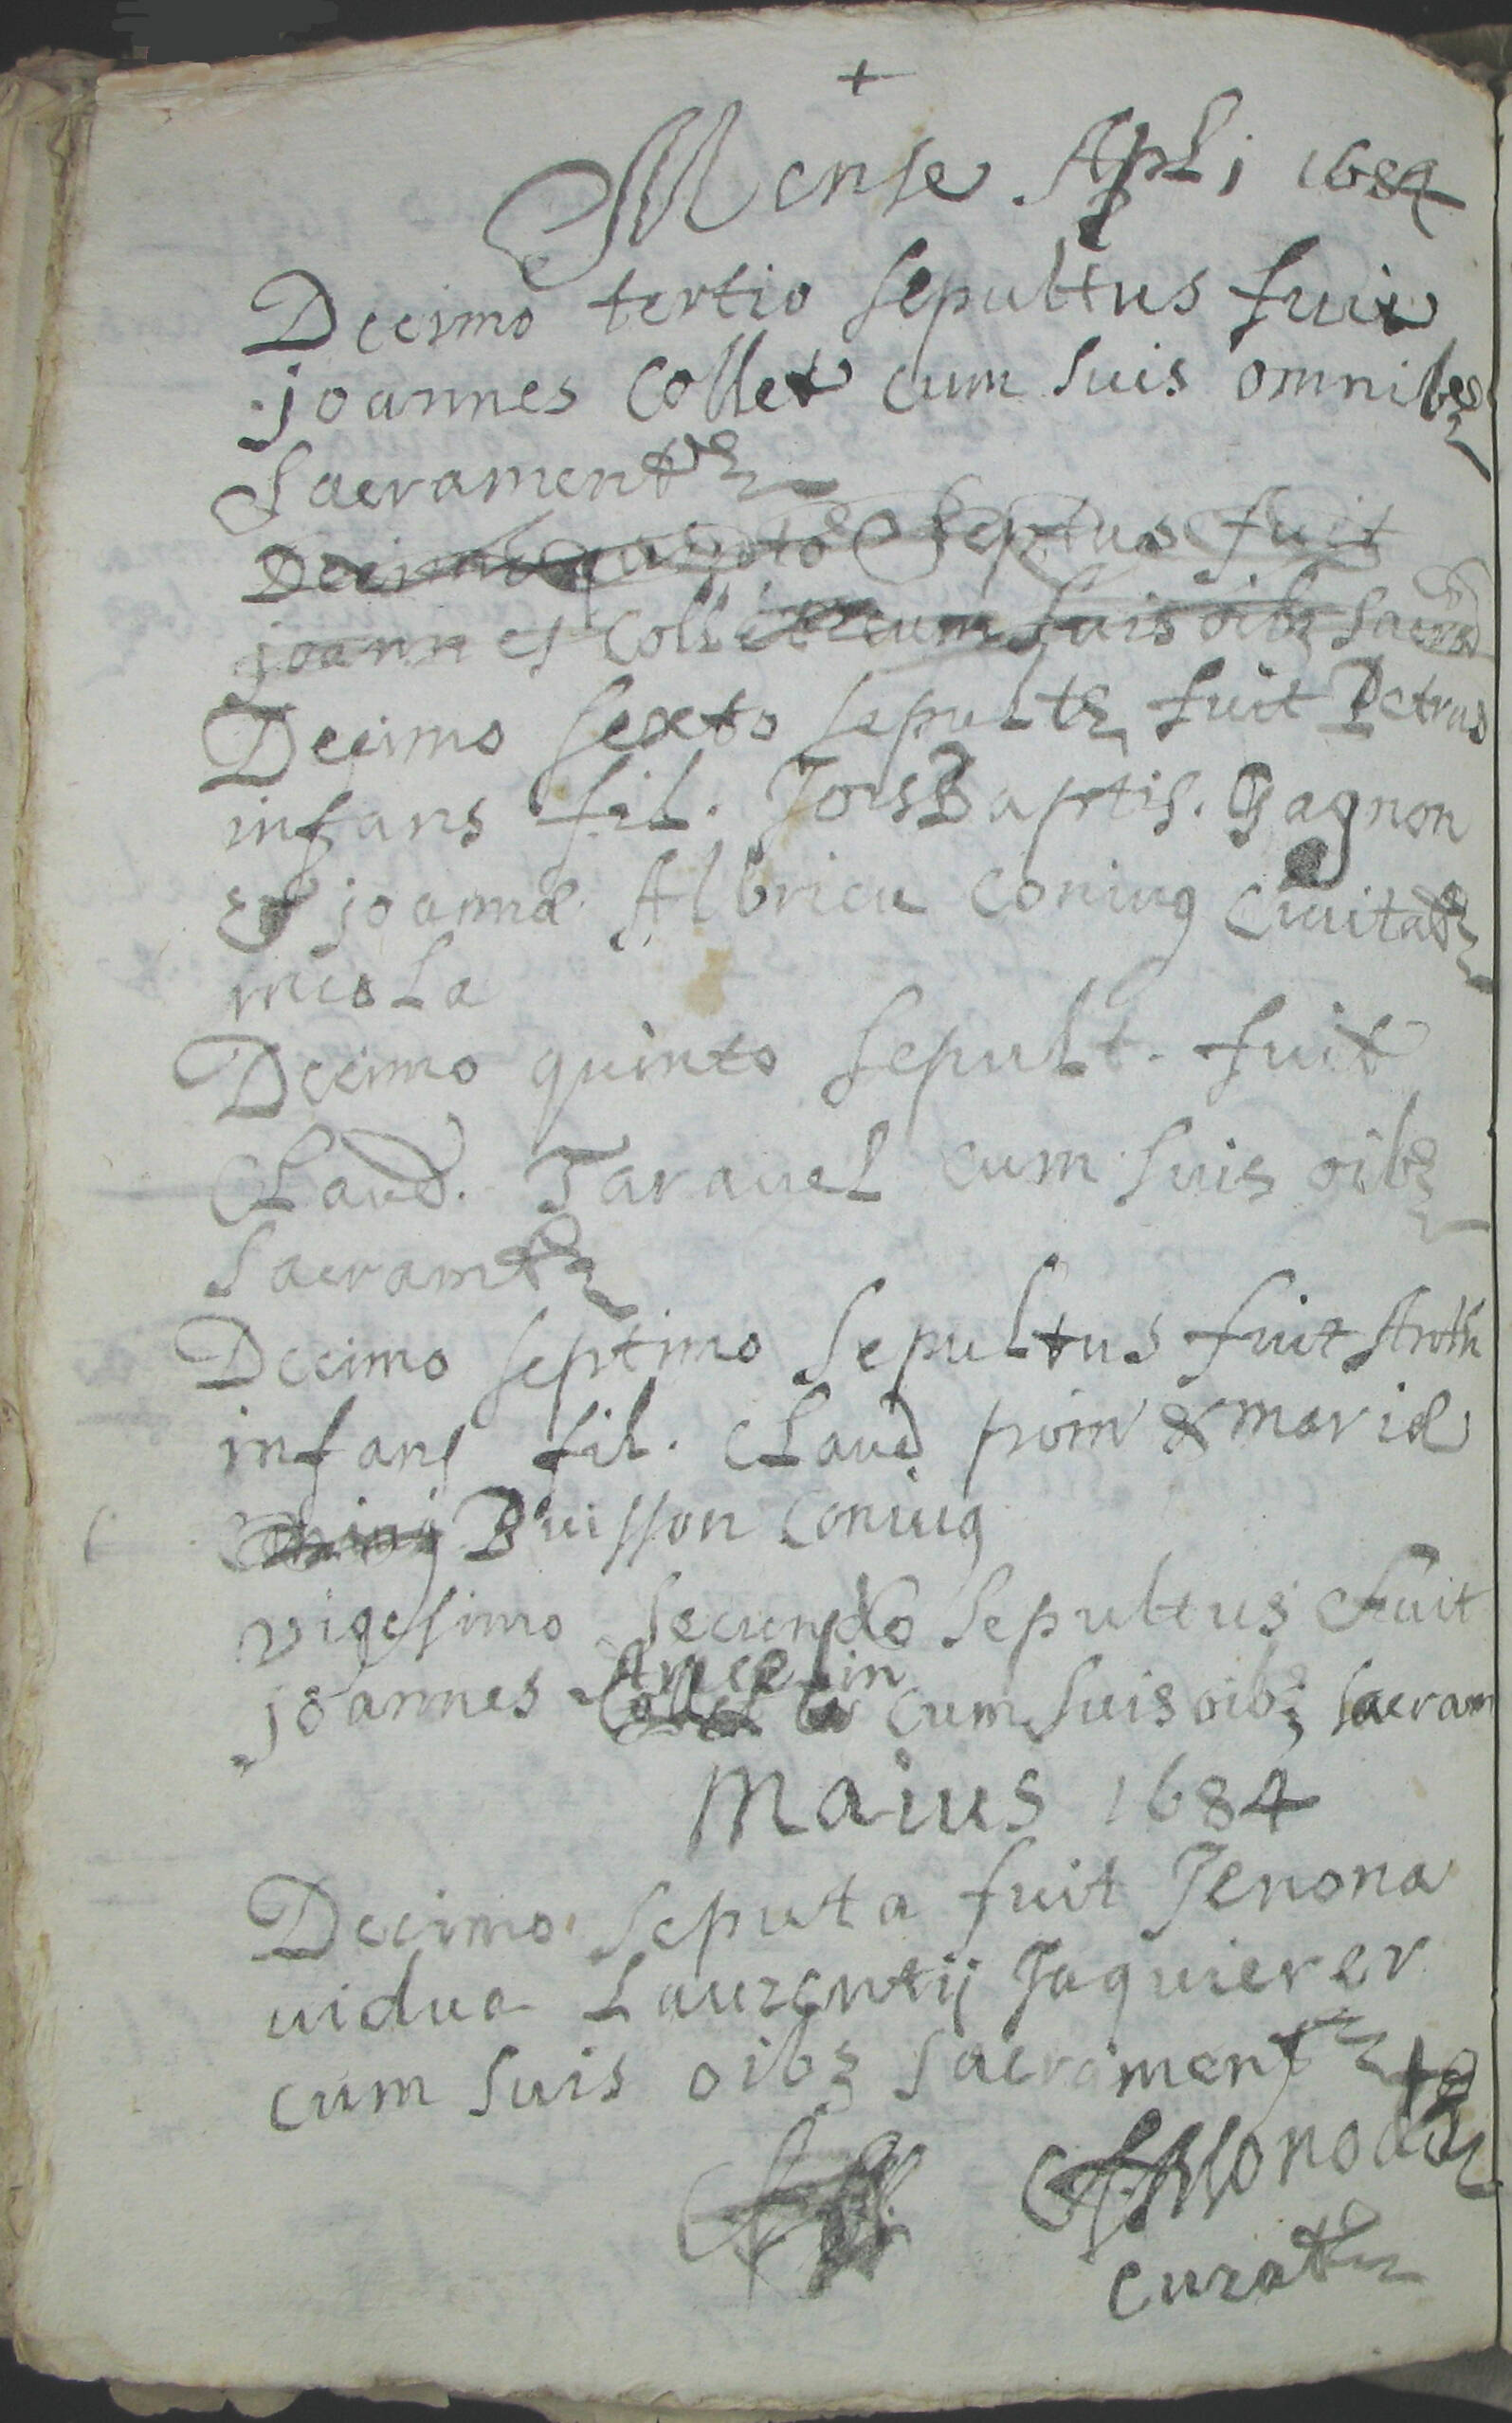 +
Mense Apli 1684
Decimo tertio sepultus fuit
joannes Collet cum suis omnibs
Sacrament
Decimo quinto septus fuit
joannes Collet cum suis oibs Sacra
Decimo sexto sepults fuit Petrus
infans fil. Jois Baptis. Gagnon
& joannæ Albrieu coniug Civitat
Decimo quinto sepult. fuit
Claud. Taravel cum suis oibs
Sacramt
Decimo septimo sepultus fuit Anth
infans fil. Claud prim & mariæ
coniug Buisson coniug
vigesimo secundo sepultus fuit
Ancelin
joannes Collet cum suis oibs sacram
Maius 1684
Decimo seputa fuit Jenona
vidua Laurentij Jaquierer
cum suis oibs sacrament
Monod
curat